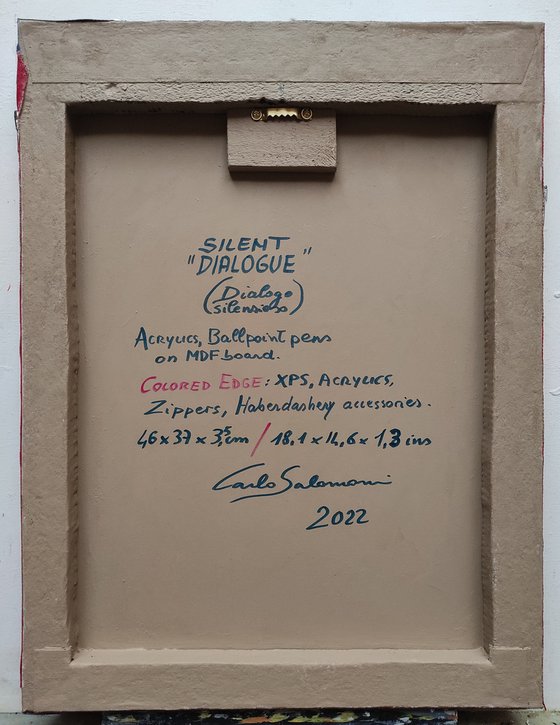 SILENT
"DIALOGUE"
(Dialogo
silensioso)
ACRYLICS, Ballpoint pens
on MDF board.
COLORED EDGE: XPS, ACRYLICS,
Zippers, Haberdashery accessories.
46 x 37 x 3,5 cm / 18,1 x 14,6 x 1,3 ins
Carlo Salomoni
2022